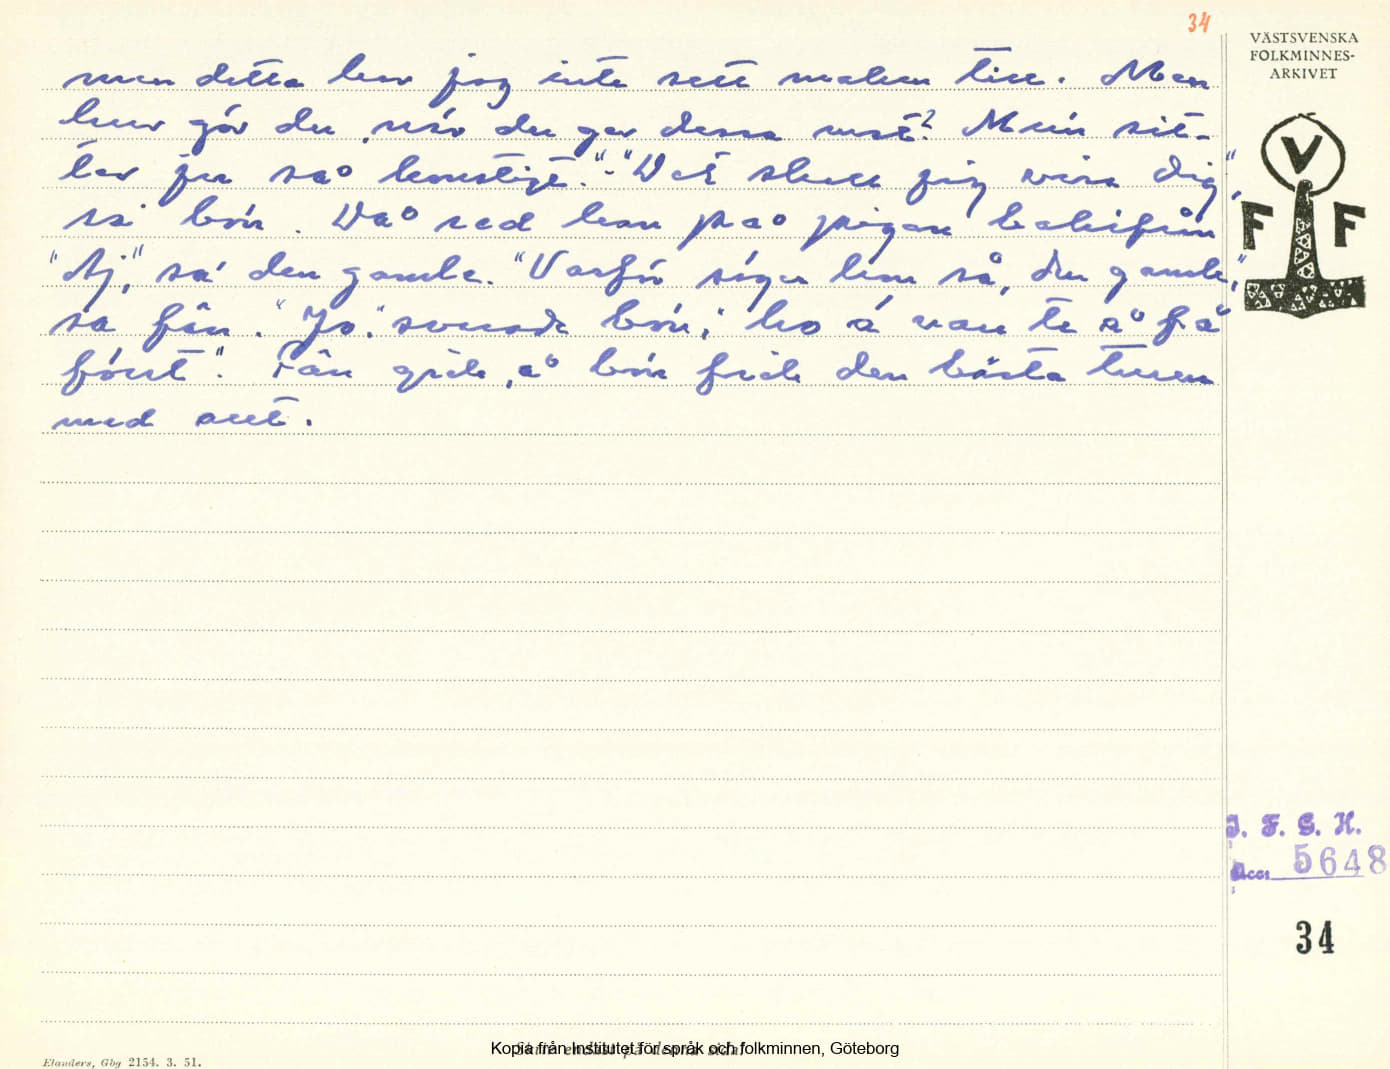 34
VÄSTSVENSKA
FOLKMINNES-
ARKIVET
men detta har jag inte sett maken till. Men
hur gör du, när du ger dessa mat? Mun sit-
ter ju så konstigt." - "Det skall jag visa dig",
sa' bön. Då red han på pigan bakifrån
"Aj," sa' den gamle. "Varför säger hon så, den gamle,"
sa fân. "Jo," svarade bön, "ho á van te å få
först". Fân gick, å bön fick den bästa turen
med allt.
V
F F
J. F. G. H.
Acc: 5648
34
Elanders, Gbg 2154. 3. 51.
Kopia från Institutet för språk och folkminnen, Göteborg